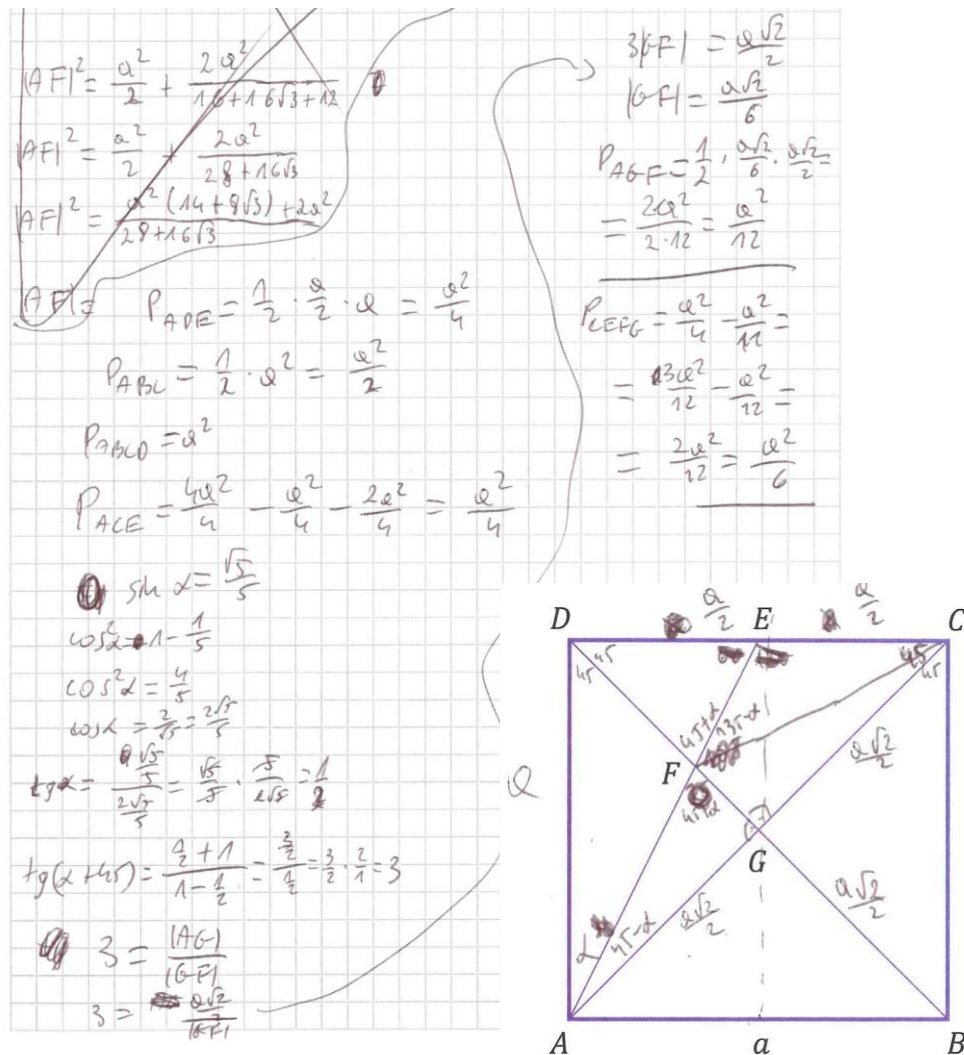 |AF|² = a²/2 + 2a²/(16+16√3+12)
|AF|² = a²/2 + 2a²/(28+16√3)
|AF|² = (a²(14+8√3)+2a²)/(28+16√3)
|AF| =
P_ADE = 1/2 · a/2 · a = a²/4
P_ABC = 1/2 · a² = a²/2
P_ABCD = a²
P_ACE = 4a²/4 − a²/4 − 2a²/4 = a²/4
sin α = √5/5
cos²α = 1 − 1/5
cos²α = 4/5
cos α = 2/√5 = 2√5/5
tg α = (√5/5)/(2√5/5) = √5/5 · 5/(2√5) = 1/2
tg(α+45) = (1/2+1)/(1−1/2) = (3/2)/(1/2) = 3/2 · 2/1 = 3
3 = |AG|/|GF|
3 = (a√2/2)/|GF|
3|GF| = a√2/2
|GF| = a√2/6
P_AGF = 1/2 · a√2/6 · a√2/2 =
= 2a²/(2·12) = a²/12
P_CEFG = a²/4 − a²/12 =
= 3a²/12 − a²/12 =
= 2a²/12 = a²/6
a/2 a/2
D E C
45 45 45 45
45+α 135−α
F
45+α
a√2/2
a
G
a√2/2 a√2/2
α 45−α
A a B